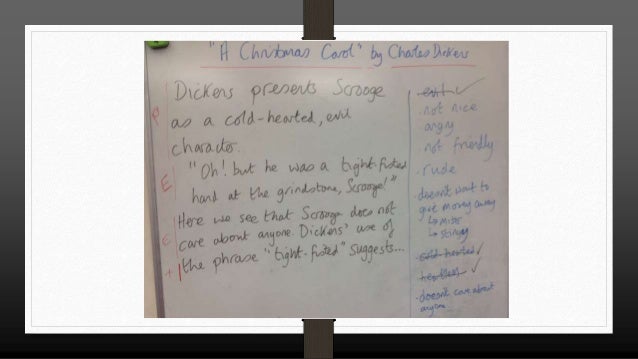 "A Christmas Carol" by Charles Dickens
P
Dickens presents Scrooge
as a cold-hearted, evil
character.
E
"Oh! but he was a tight-fisted
hand at the grindstone, Scrooge!"
E
Here we see that Scrooge does not
care about anyone. Dickens' use of
+1 the phrase "tight-fisted" suggests...
evil ✓
· not nice
angry
not friendly
· rude
· doesn't want to
give money away
↳ miser
↳ stingy
· cold-hearted ✓
· heartless ✓
· doesn't care about
anyone